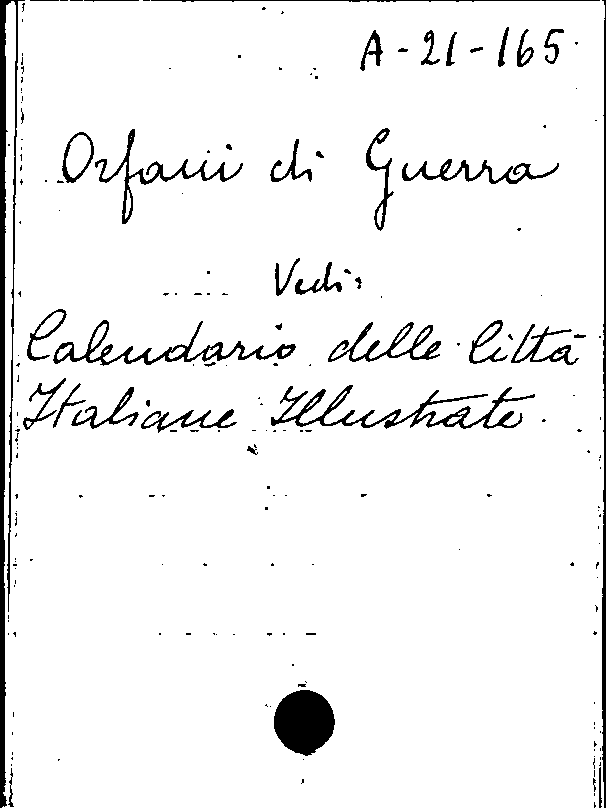 A-21-165
Orfani di Guerra
Vedi:
Calendario delle Città
Italiane Illustrate.